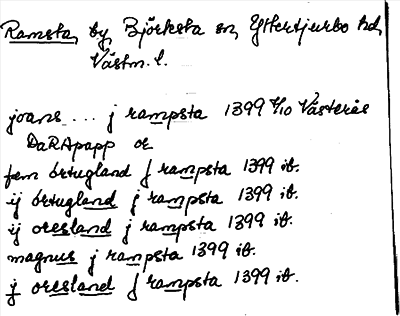 Ramsta, by, Björksta sn, Yttertjurbo hd,
Västm. l.
joans ... j rampsta 1399 4/10 Västerås
DaRApapp or
fem örtugland j rampsta 1399 ib.
ij örtugland j rampsta 1399 ib.
ij oresland j rampsta 1399 ib.
magnus j rampsta 1399 ib.
j oresland j rampsta 1399 ib.